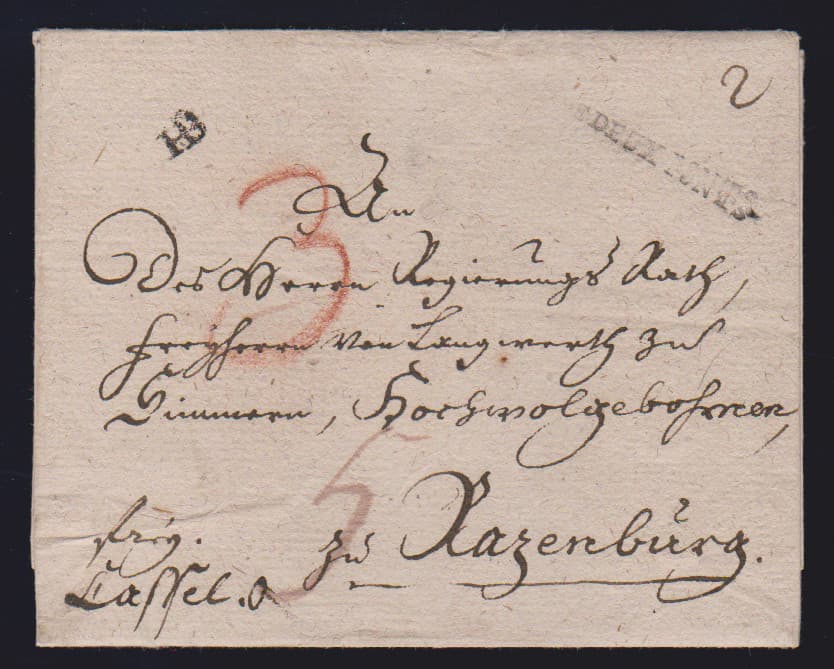 2
HB
DEUX PONTS
3
An
Des Herrn Regierungs Rath,
Freyherrn von Langwerth zu
Simmern, Hochwolgebohrnen,
5
zu Razenburg.
frey.
Cassel.